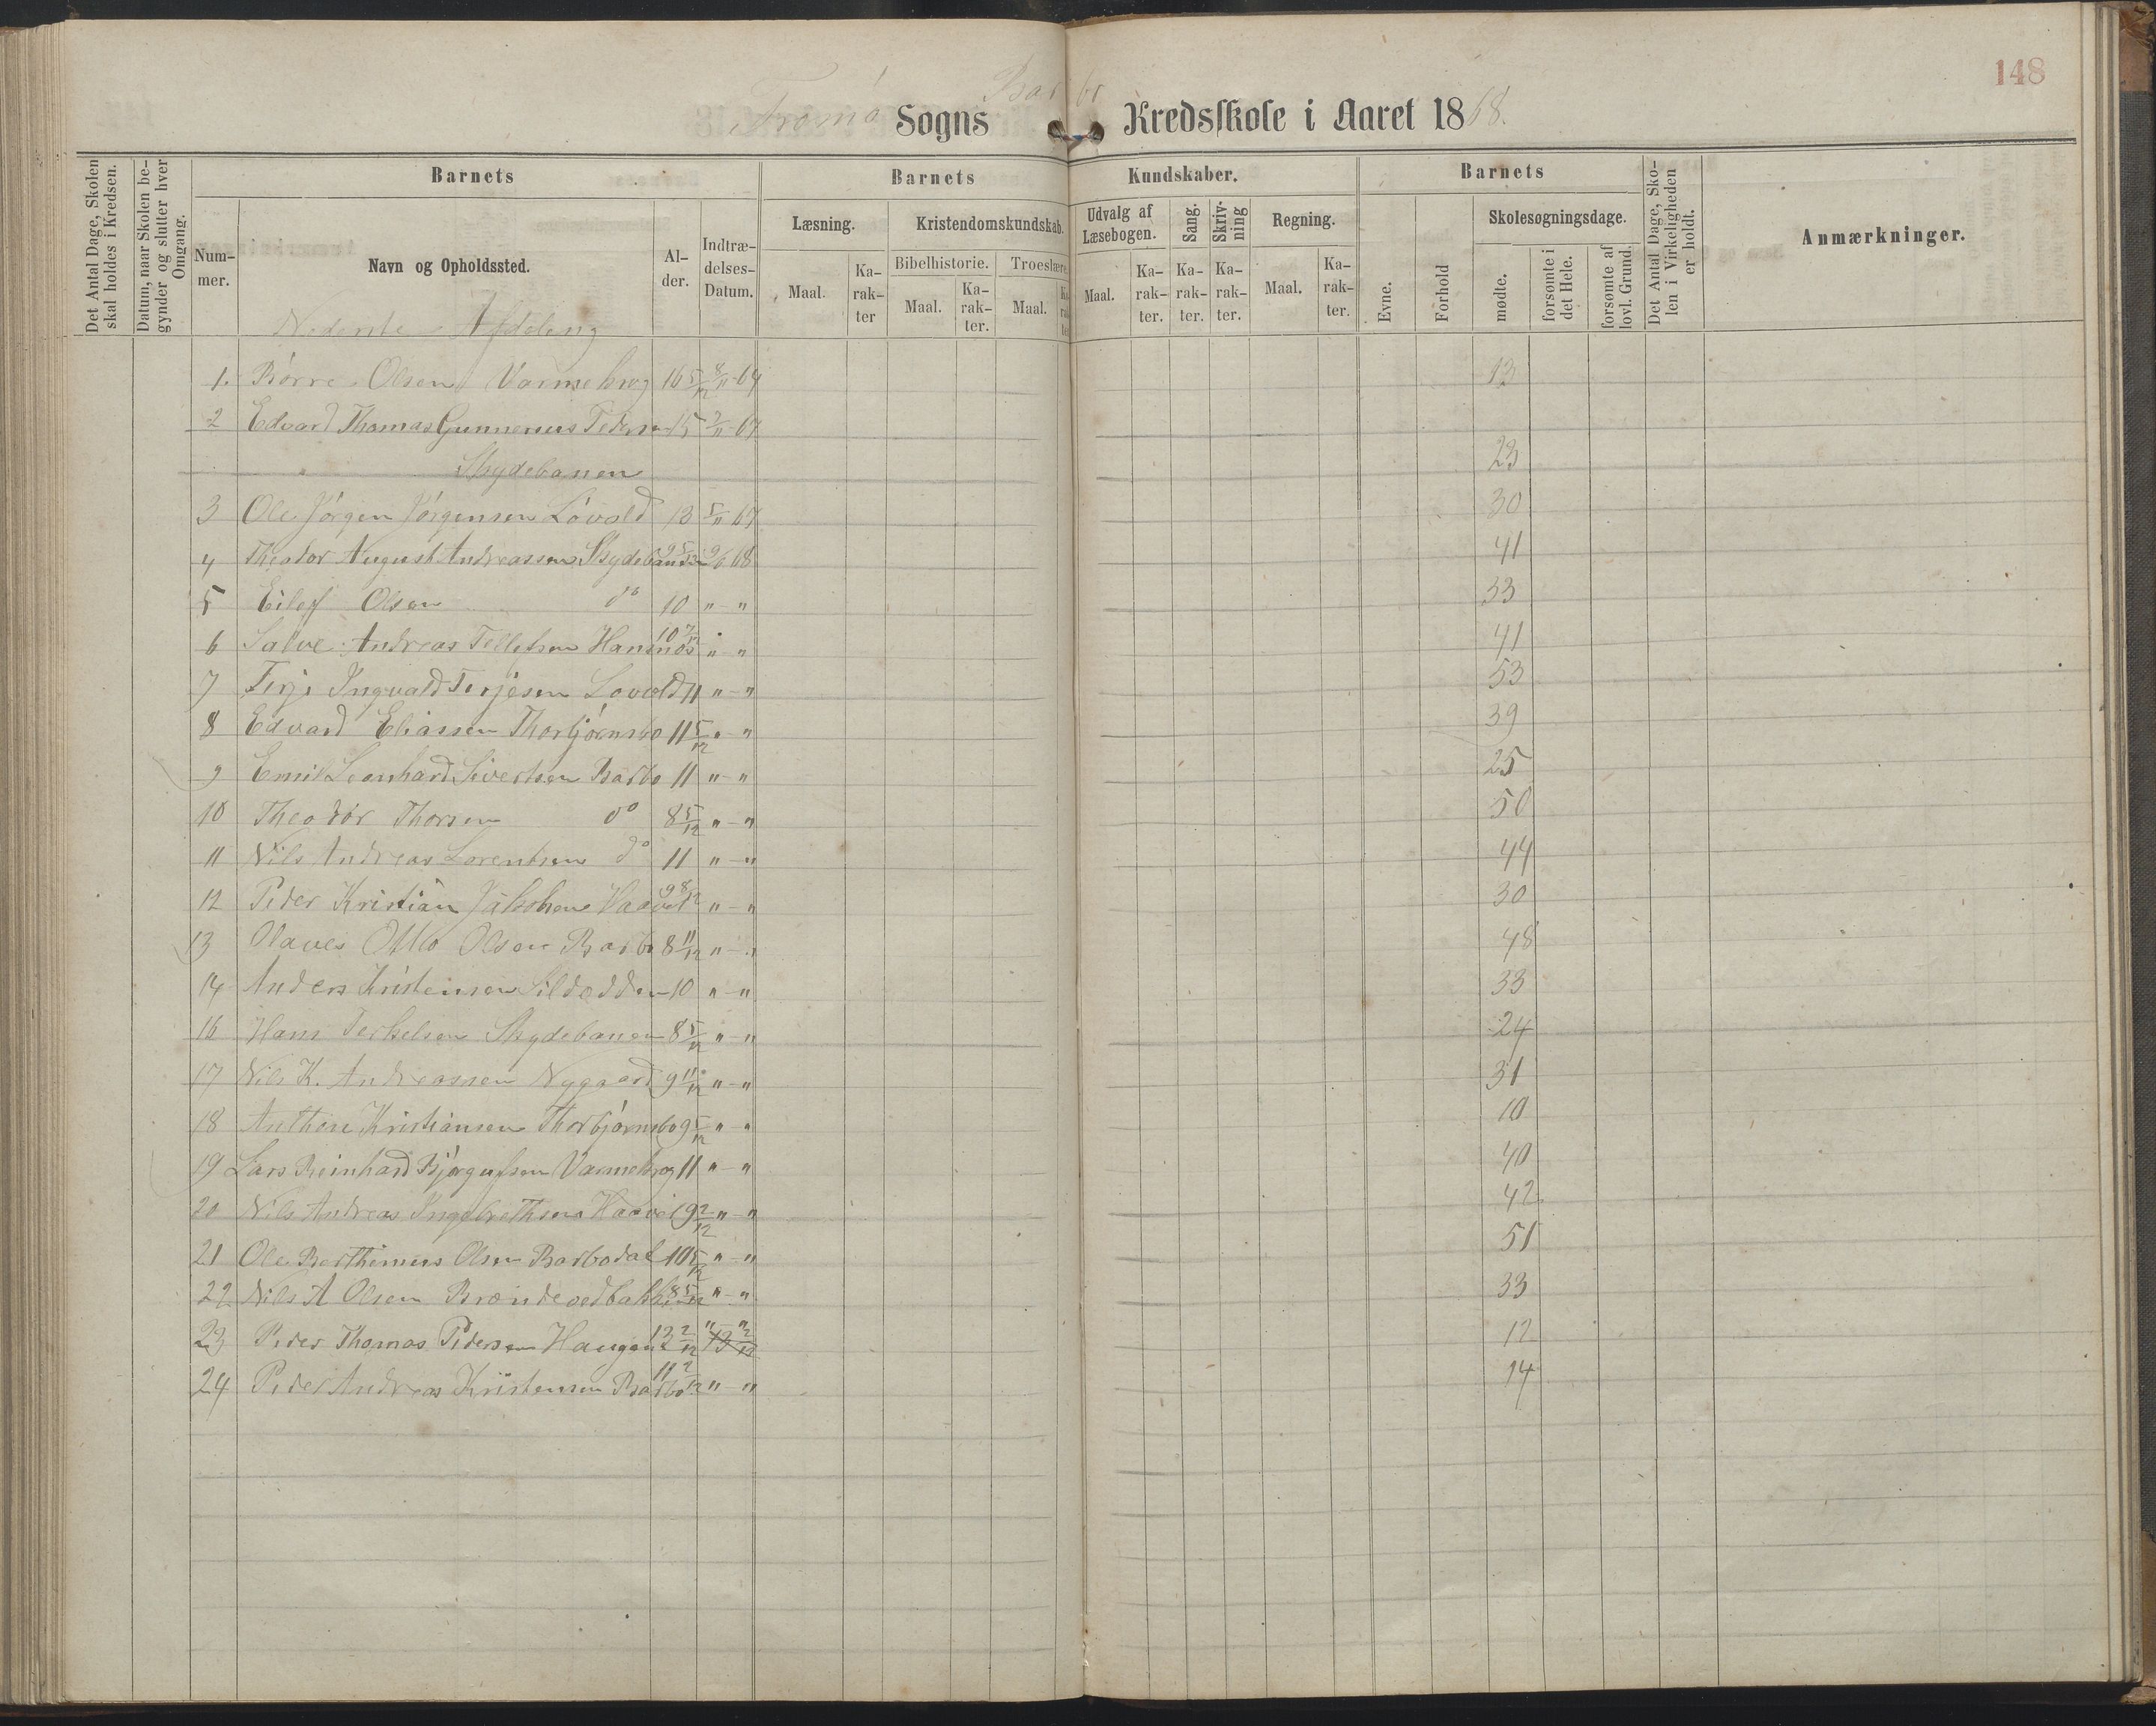 148
Barbo
Tromö Sogns Kredsskole i Aaret 1868.
Det Antal Dage, Skolen skal holdes i Kredsen.
Datum, naar Skolen begynder og slutter hver Omgang.
Barnets
Barnets Kundskaber.
Barnets
Det Antal Dage, Skolen i Virkeligheden er holdt.
Anmærkninger.
Nummer.
Navn og Opholdssted.
Alder.
Indtrædelses-Datum.
Læsning.
Kristendomskundskab.
Udvalg af Læsebogen.
Sang.
Skrivning
Regning.
Evne.
Forhold
Skolesøgningsdage.
Bibelhistorie.
Troeslære.
Maal. Karakter
Maal. Karakter.
Maal.
Maal. Karakter.
Karakter.
Karakter.
Maal. Karakter.
mødte.
forsømte i det Hele.
forsømte af lovl. Grund.
Nederste Afdeling
1. Börre Olsen Varmekrog 16 5/12 8/11-64 13
2 Edvard Thomas Gunnerius Peders 15 7/11-67
Skydebanen 23
3 Ole Jörgen Jörgensen Lövold 13 5/11 67 30
4 Theodor August Andreassen Skydebanen 9 5/12 9/6 68 41
5 Eilef Olsen do 10 " - " 33
6 Salve Andreas Tellefsen Hansnæs 10 7/12 " - " 41
7 Terje Ingvald Terjesen Lövold 11 " - " 53
8 Edvard Eliassen Thorbjörnsbo 11 5/12 " - " 39
9 Emil Leonhard Sivertsen Barbo 11 " - " 25
10 Theodor Thorsen do 8 5/12 " - " 50
11 Nils Andreas Lorentsen do 11 " - " 44
12 Peder Kristian Jakobsen Haavet 9 8/12 " - " 30
13 Olaves Otto Olsen Barbo 8 11/12 " - " 48
14 Anders Kristensen Sildodden 10 " - " 33
16 Hans Terkelsen Skydebanen 8 5/12 " - " 24
17 Nils K. Andreassen Nygaard 9 11/12 " - " 31
18 Anthon Kristiansen Thorbjörnsbo 9 5/12 " - " 10
19 Lars Reinhard Bjorgufsen Varmekrog 11 " - " 40
20 Nils Andreas Ingebrethsen Haavet 9 2/12 " - " 42
21 Ole Barthinius Olsen Barbodal 10 5/12 " - " 51
22 Nils A Olsen Brændevedbakken 8 5/12 " - " 33
23 Peder Thomas Pedersen Haugen 13 2/12 " - " 12
24 Peder Andreas Kristensen Barbo 11 2/12 " - " 14